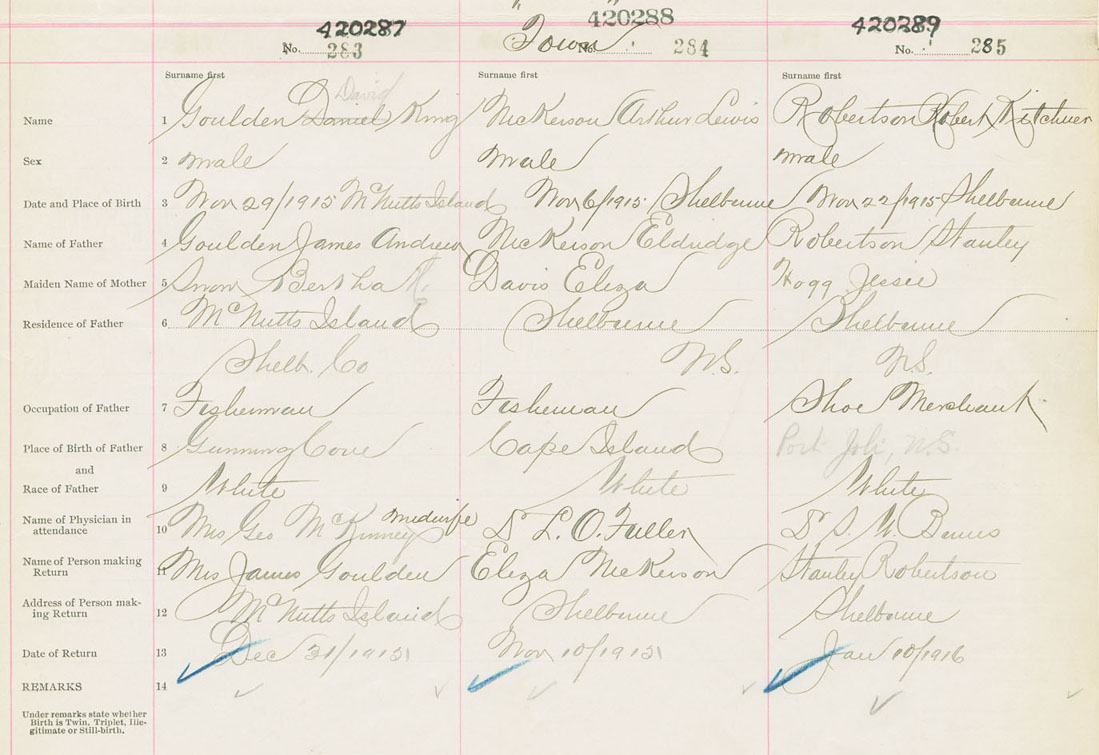 " "
420287 420288 420289
No. 283 Town No. 284 No. 285
Surname first Surname first Surname first
David
Name 1 Goulden Daniel King Nickerson Arthur Lewis Robertson Robert Kitchner
Sex 2 male male male
Date and Place of Birth 3 Nov 29/1915 McNutts Island Nov 6/1915 Shelburne Nov 22/1915 Shelburne
Name of Father 4 Goulden James Andrew Nickerson Eldridge Robertson Stanley
Maiden Name of Mother 5 Snow Bertha Davis Eliza Hogg Jessie
Residence of Father 6 McNutts Island Shelburne Shelburne
Shelb. Co N.S. N.S.
Occupation of Father 7 Fisherman Fisherman Shoe Merchant
Place of Birth of Father 8 Gunning Cove Cape Island Port Joli, N.S.
and
Race of Father 9 White White White
Name of Physician in attendance 10 Mrs Geo McKinney midwife Dr L. O. Fuller Dr S. W.
Name of Person making Return 11 Mrs James Goulden Eliza Nickerson Stanley Robertson
Address of Person making Return 12 McNutts Island Shelburne Shelburne
Date of Return 13 Dec 31/1915 Nov 10/1915 Jan 10/1916
REMARKS 14
Under remarks state whether
Birth is Twin, Triplet, Ille-
gitimate or Still-birth.